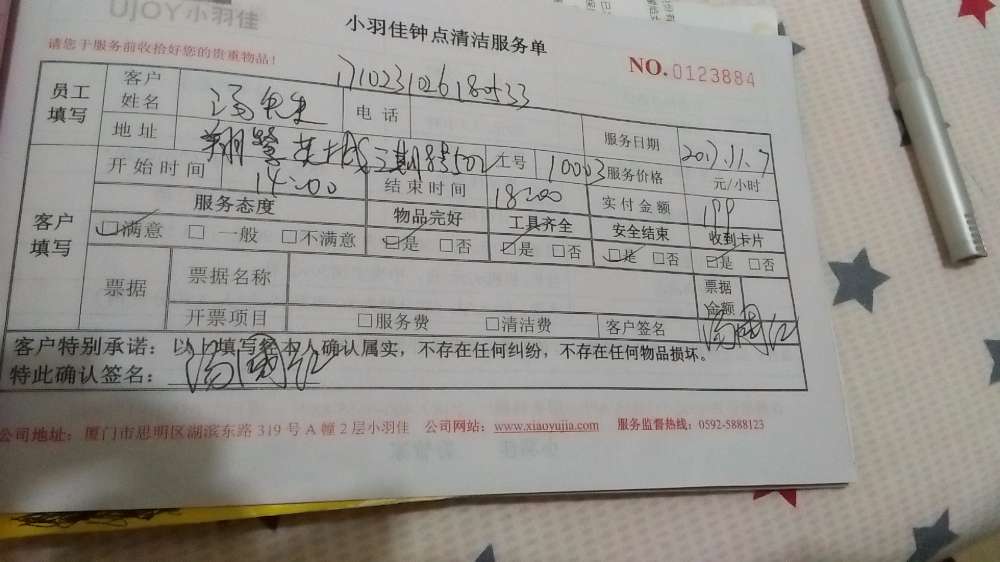 UJOY小羽佳
小羽佳钟点清洁服务单
请您于服务前收拾好您的贵重物品！
NO.0123884
1710231026180533
员工填写 客户姓名 汤先生 电话 服务日期 2017.11.7
地址 三期 502 工号 10003 服务价格 元/小时
客户填写 开始时间 14:00 结束时间 18:00 实付金额 199
服务态度 物品完好 工具齐全 安全结束 收到卡片
☑满意 □一般 □不满意 ☑是 □否 ☑是 □否 ☑是 □否 ☑是 □否
票据 票据名称 票据金额
开票项目 □服务费 □清洁费 客户签名
客户特别承诺：以上填写经本人确认属实，不存在任何纠纷，不存在任何物品损坏。
特此确认签名：
公司地址：厦门市思明区湖滨东路319号A幢2层小羽佳 公司网站：www.xiaoyujia.com 服务监督热线：0592-5888123